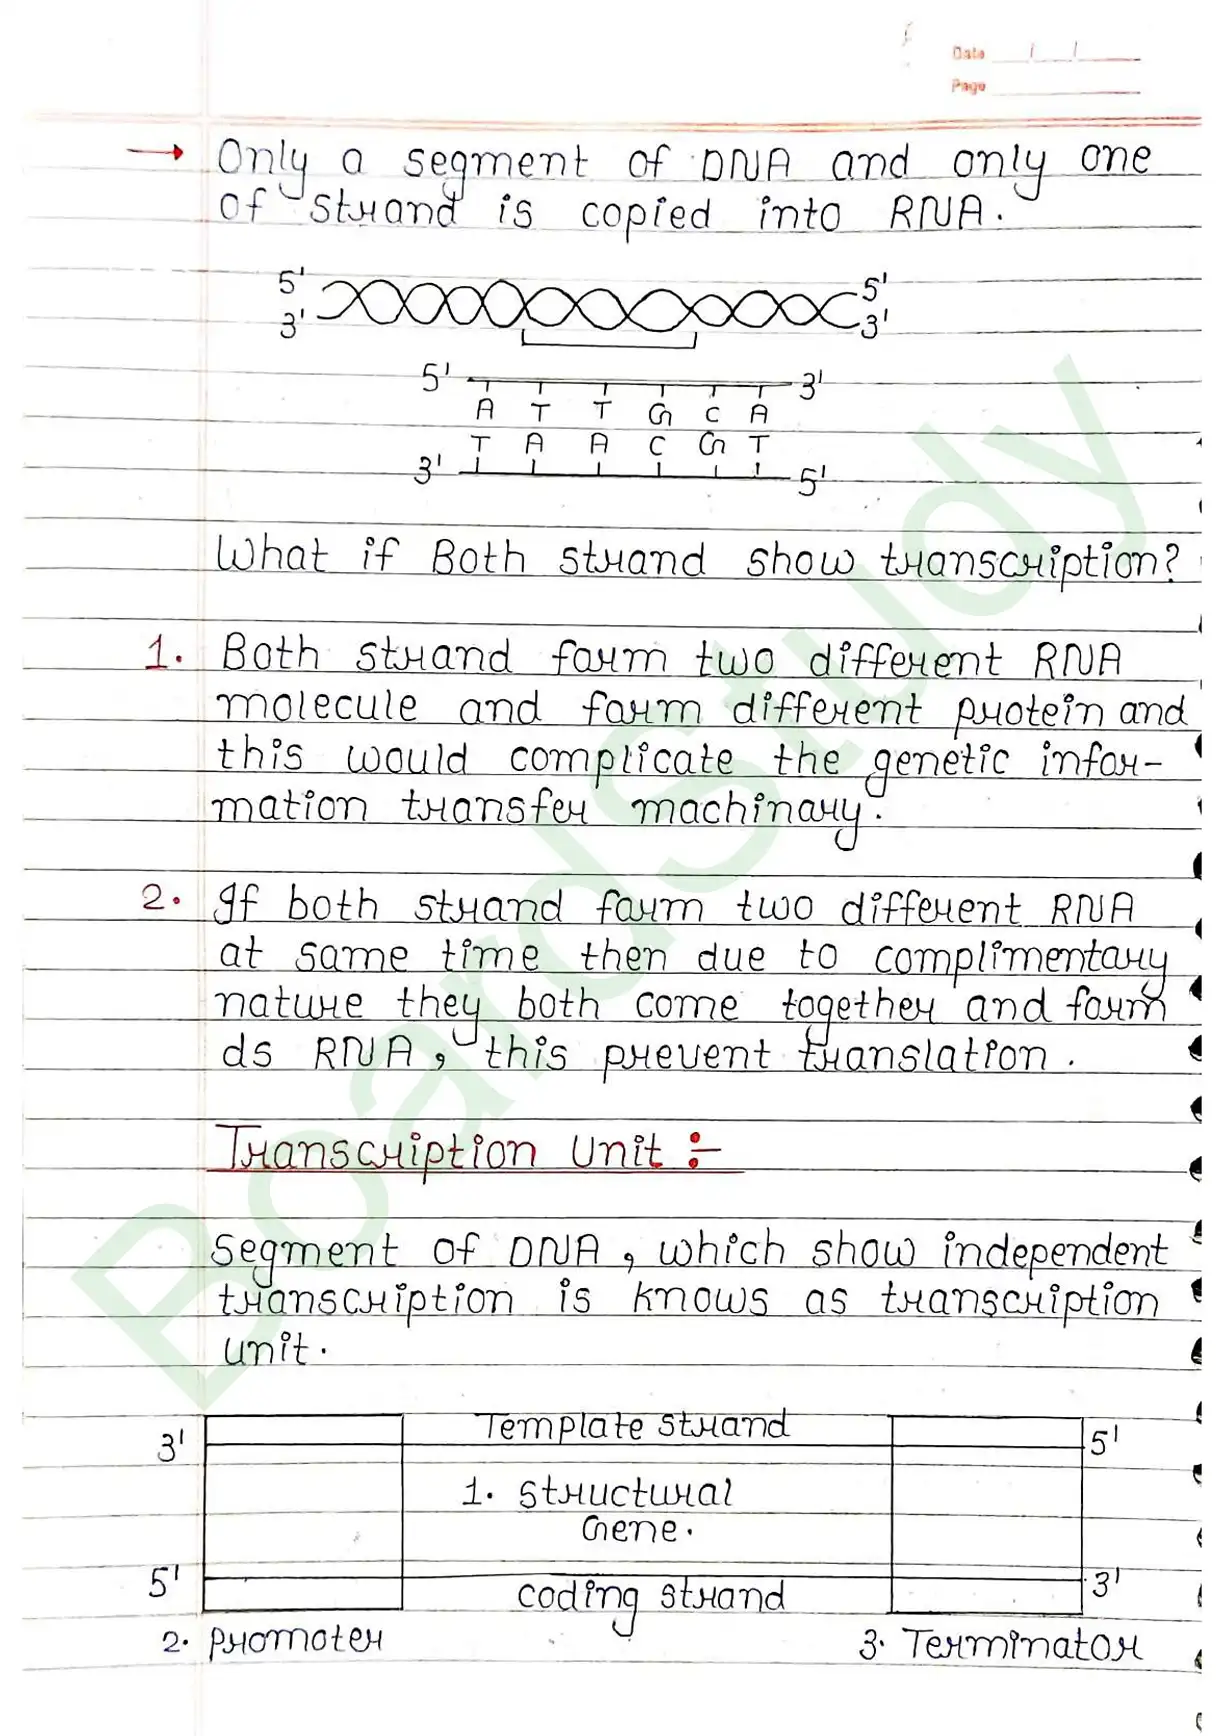 Date
Page
→ Only a segment of DNA and only one
of strand is copied into RNA.
5' 5'
3' 3'
5' 3'
A T T G C A
T A A C G T
3' 5'
What if Both strand show transcription?
1. Both strand form two different RNA
molecule and form different protein and
this would complicate the genetic infor-
mation transfer machinary.
2. If both strand form two different RNA
at same time then due to complimentary
nature they both come together and form
ds RNA, this prevent translation.
Transcription Unit :-
Segment of DNA, which show independent
transcription is knows as transcription
unit.
Template strand
3' 5'
1. Structural
Gene.
5' 3'
coding strand
2. Promoter 3. Terminator
BoardStudy